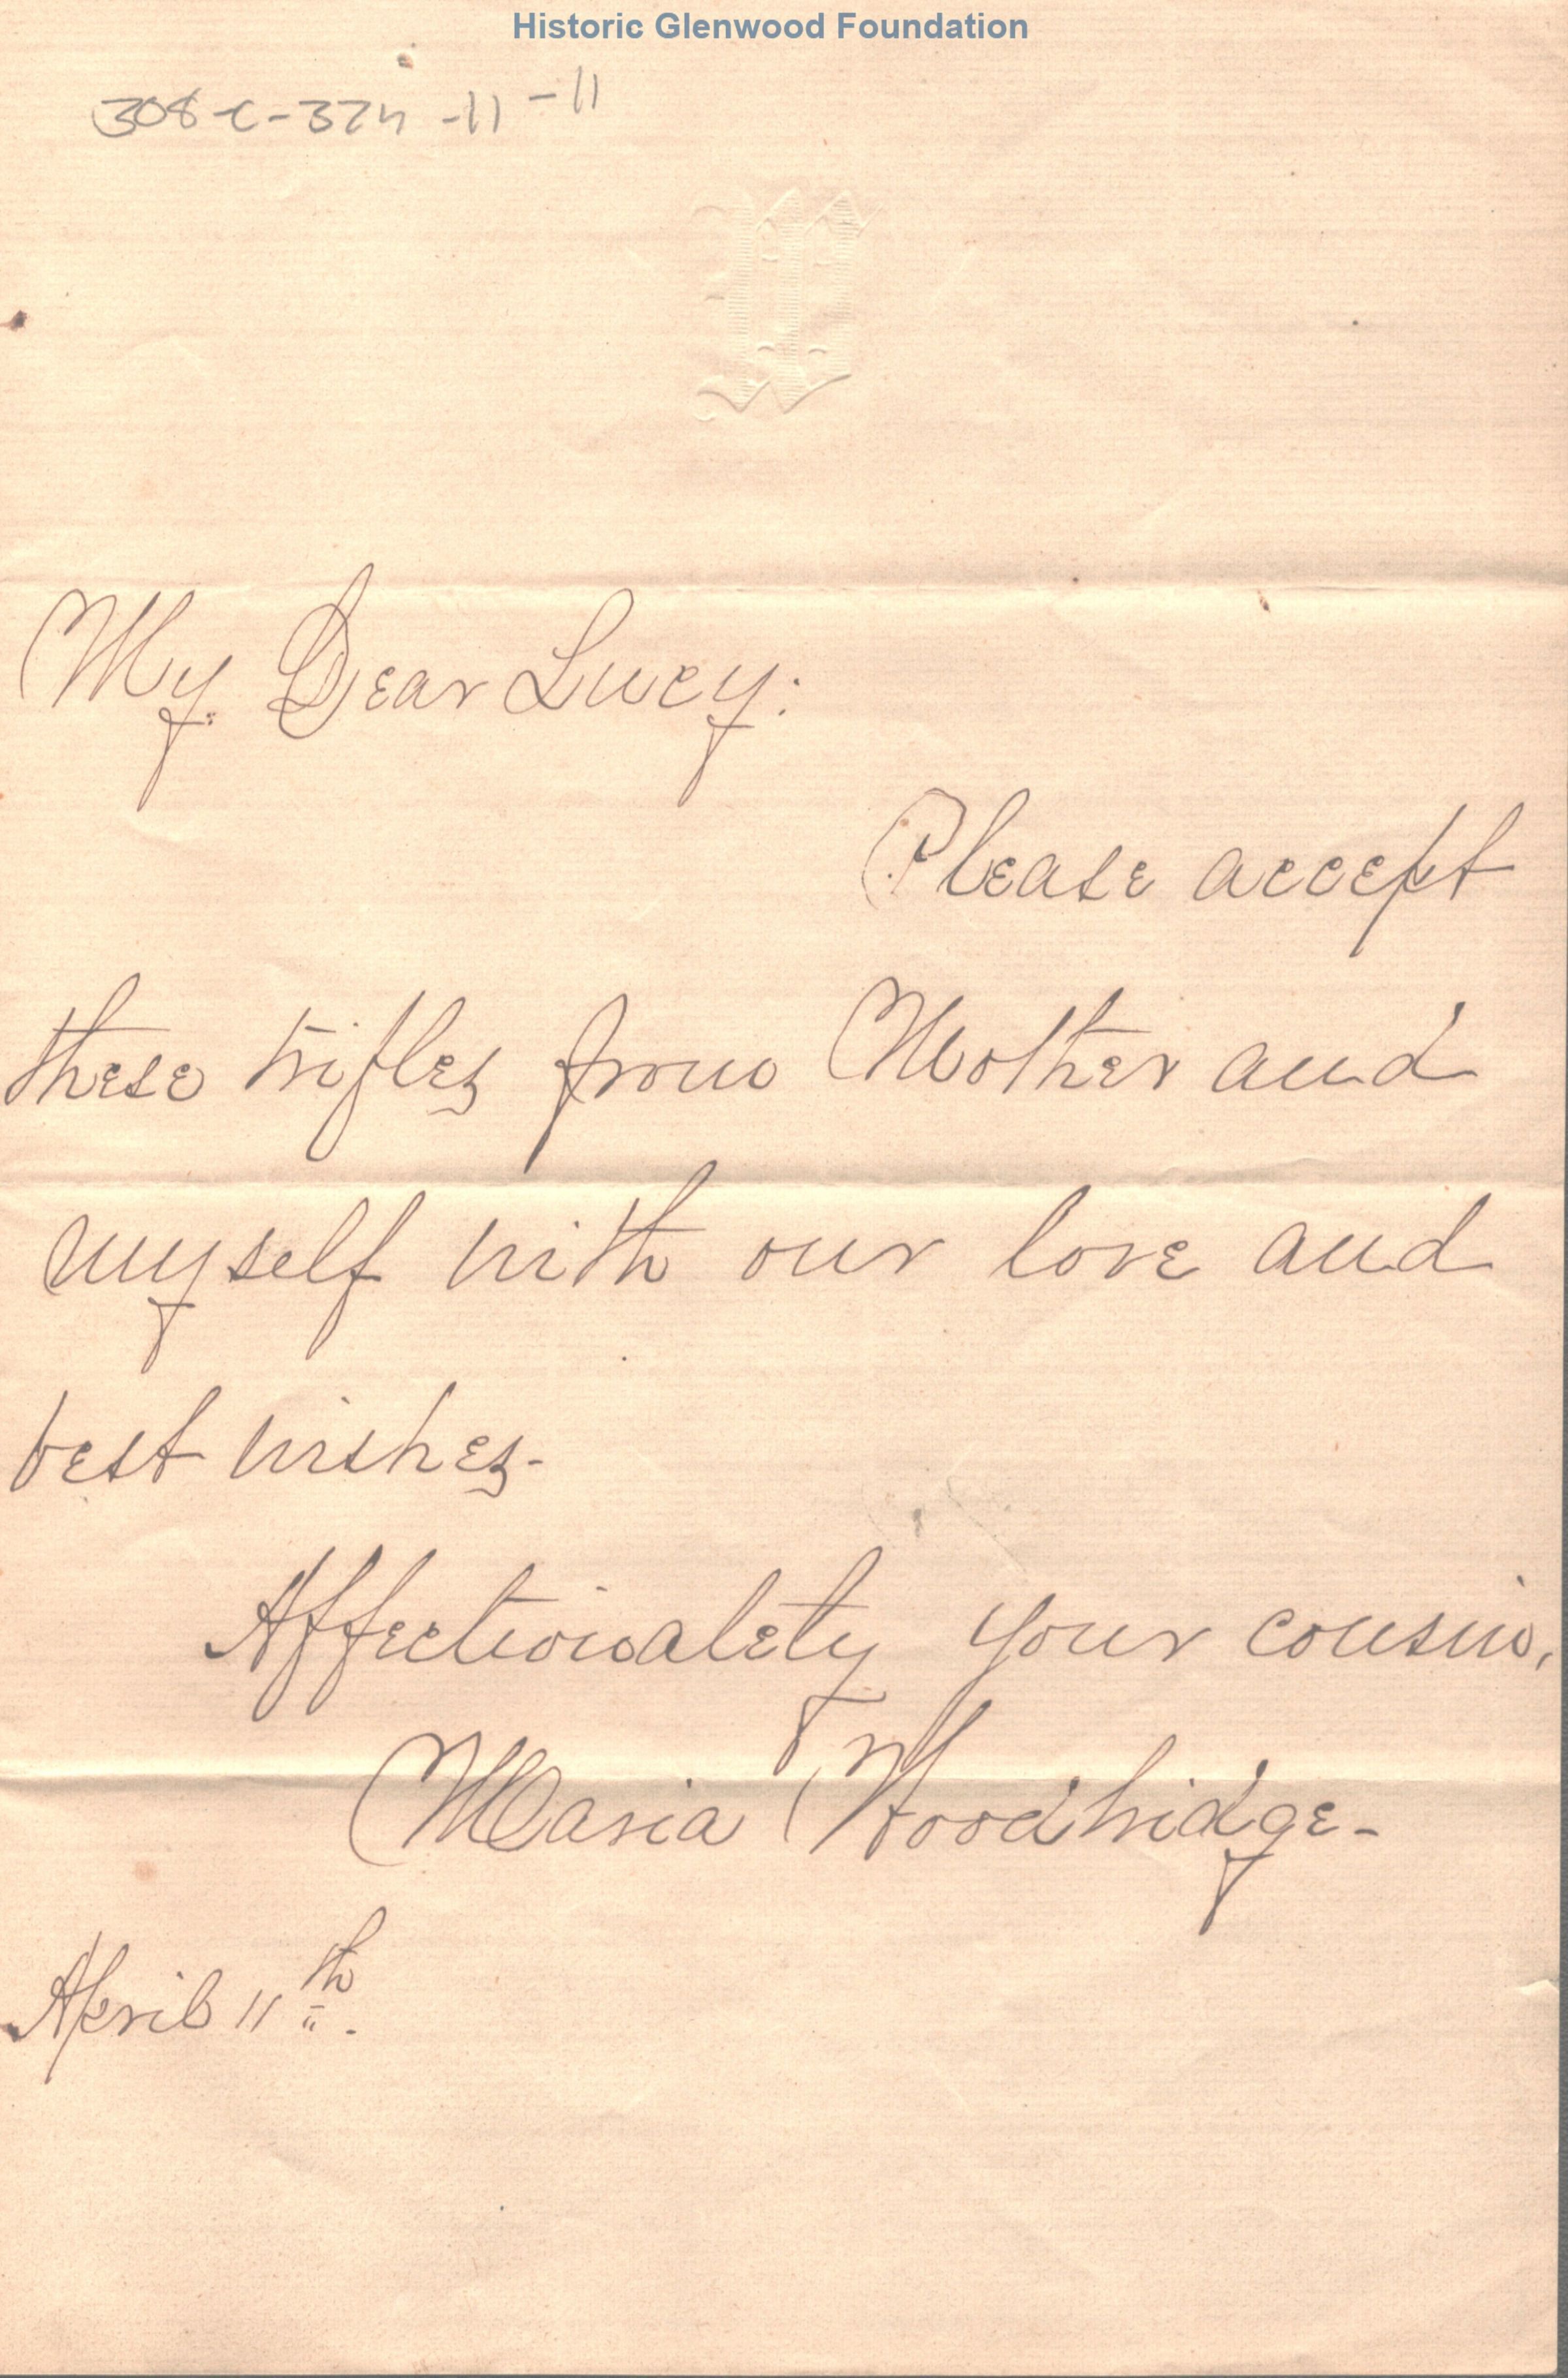 Historic Glenwood Foundation
308-c-32n-11-11
W
My Dear Lucy:
Please accept
these trifles from Mother and
myself with our love and
best wishes-
Affectionately your cousin,
Maria Woodbridge-
April 11th.